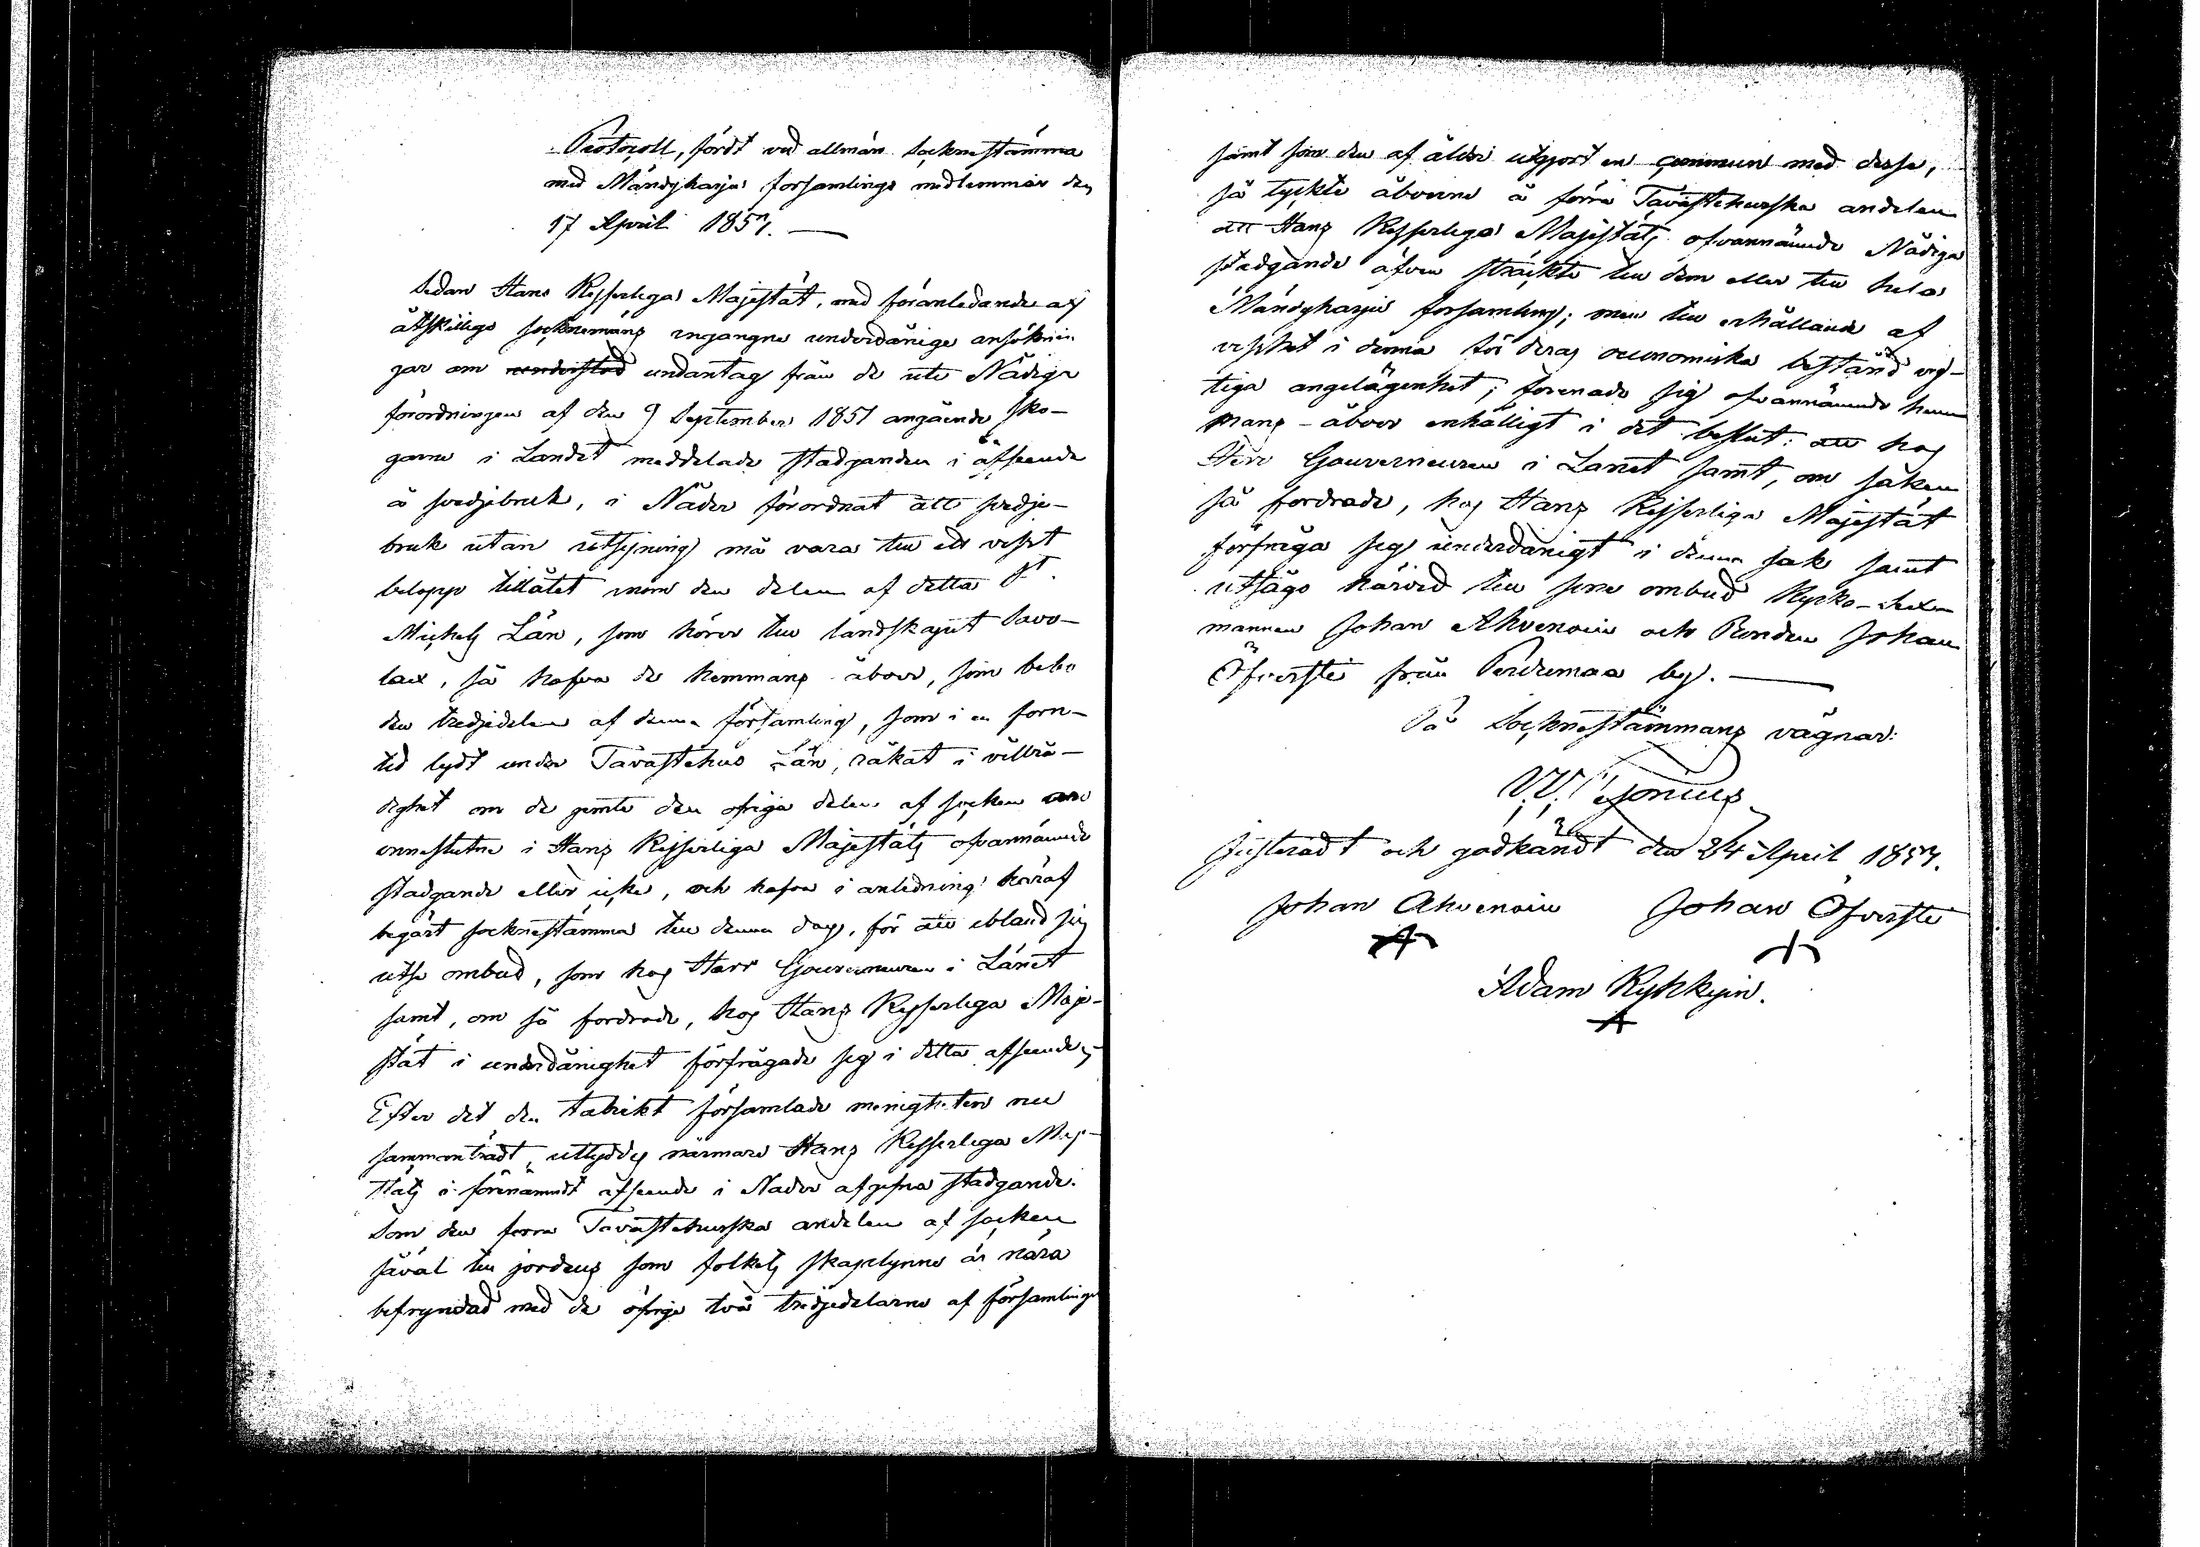 Protocoll, fördt vid allmän Socknestämma
med Mändyharju församlings medlemmar den
17 April 1857. —
Sedan Hans Kejserliga Majestät, med föranledande af
åtskillige socknemäns ingangne underdånige ansöknin
gar om understöd undantag från de uti Nådiga
förordningen af den 9 September 1851 angående sko-
garne i Landet meddelade stadganden i afseende
å svedjebruk, i Nåder förordnat att svedje-
bruk utan utsyning må vara till ett visst
belopp tillåtet inom den delen af detta St.
Michels Län, som hörer till landskapet Savo-
lax, så hafva de hemmans åboer, som bebo
den tredjedelen af denna församling, som i en forn-
tid lydt under Tavastehus Län, råkat i villrå-
dighet om de jemte den öfriga delen af socken äro
inneslutne i Hans Kejserliga Majestäts ofvannämnde
stadgande eller icke, och hafva i anledning häraf
begärt sockнestämma till denna dag, för att ibland sig
utse ombud, som hos Herr Gouverneuren i Länet
samt, om så fordrade, hos Hans Kejserliga Maje-
stät i underdånighet förfrågade sig i detta afseende;
Efter det den talrikt församlade menigheten nu
sammanträdt, uttyddes närmare Hans Kejserliga Maje-
stäts i förenämndt afseende i Nåder afgifna stadgande.
Som den förra Tavastehusska andelen af socken
såväl till jordens som folkets skaplynne är nära
befryndad med de öfriga två tredjedelarne af församlingen
samt som den af ålder utgjort en commun med desse,
så tyckte åboerne å förra Tavastehusska andelen
att Hans Kejserliga Majestäts ofvannämnde Nådiga
stadgande äfven sträckte till dem eller till hela
Mändyharju församling; men till erhållande af
visshet i denna för deras oeconomiska bestånd vig-
tiga angelägenhet, förenade sig ofvannämnde hem
mans-åboer enhälligt i det beslut: att hos
Herr Gouverneuren i Länet samt, om saken
så fordrade, hos Hans Kejserliga Majestät
förfråga sig underdånigt i denna sak samt
utsågo härvid till sina ombud Kyrko-Sex-
mannen Johan Ahvenain och Bonden Johan
Öfverste från Pertumaa by. —
På Socknestämmans vägnar:
Justeradt och godkändt den 24 April 1857.
Johan Ahvenain Johan Öfverste
Adam Kykkyin.